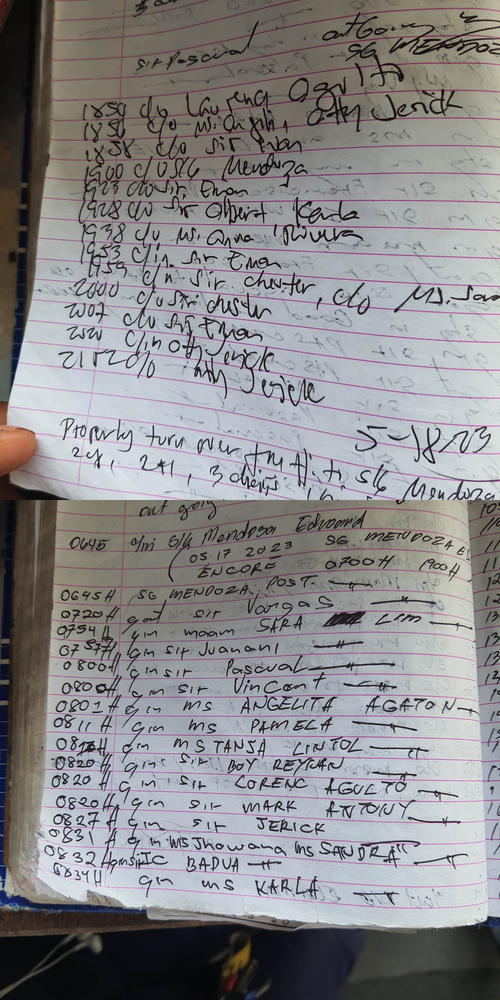 Sir Pascual
out Going
SG MENDOZA
1854 c/o Laurenz Agulto
1856 c/o Ms. Angeli, Atty Jerick
1858 c/o Sir Eman
1900 c/o S/G Mendoza
1923 c/o Sir Eman
1928 c/o Sir Albert Karla
1938 c/o Ms. Anna Rivera
1953 c/in Sir Eman
1959 c/in Sir chester, c/o Ms.
2000 c/o Sir chester
2007 c/o Sir Eman
2020 c/in Atty Jerick
2152 c/o Atty Jerick
5-18-23
Properly turn over to S/G Mendoza
out going
0645 o/in S/G Mendoza Edward
SG MENDOZA E
(05 17 2023
ENCORE 0700H 1900H
0645H SG MENDOZA POST
0720H g/in sir Vargas
0754H g/in maam SARA LIM
0757H g/in sir Juanani
0800H g/in sir Pascual
0800H g/in sir Vincent
0801H g/in ms ANGELITA AGATON
0811H g/in ms PAMELA
g/in MS TANSA LINTOL
0820H g/in sir BOY REYNAN
0820 g/in sir LORENC AGULTO
0820H g/in sir MARK ANTONY
0827 g/in sir JERICK
0831 H g/in ms Jhowana ms SANDRA
0832H g/in sir JC BADUA
0834H g/in ms KARLA